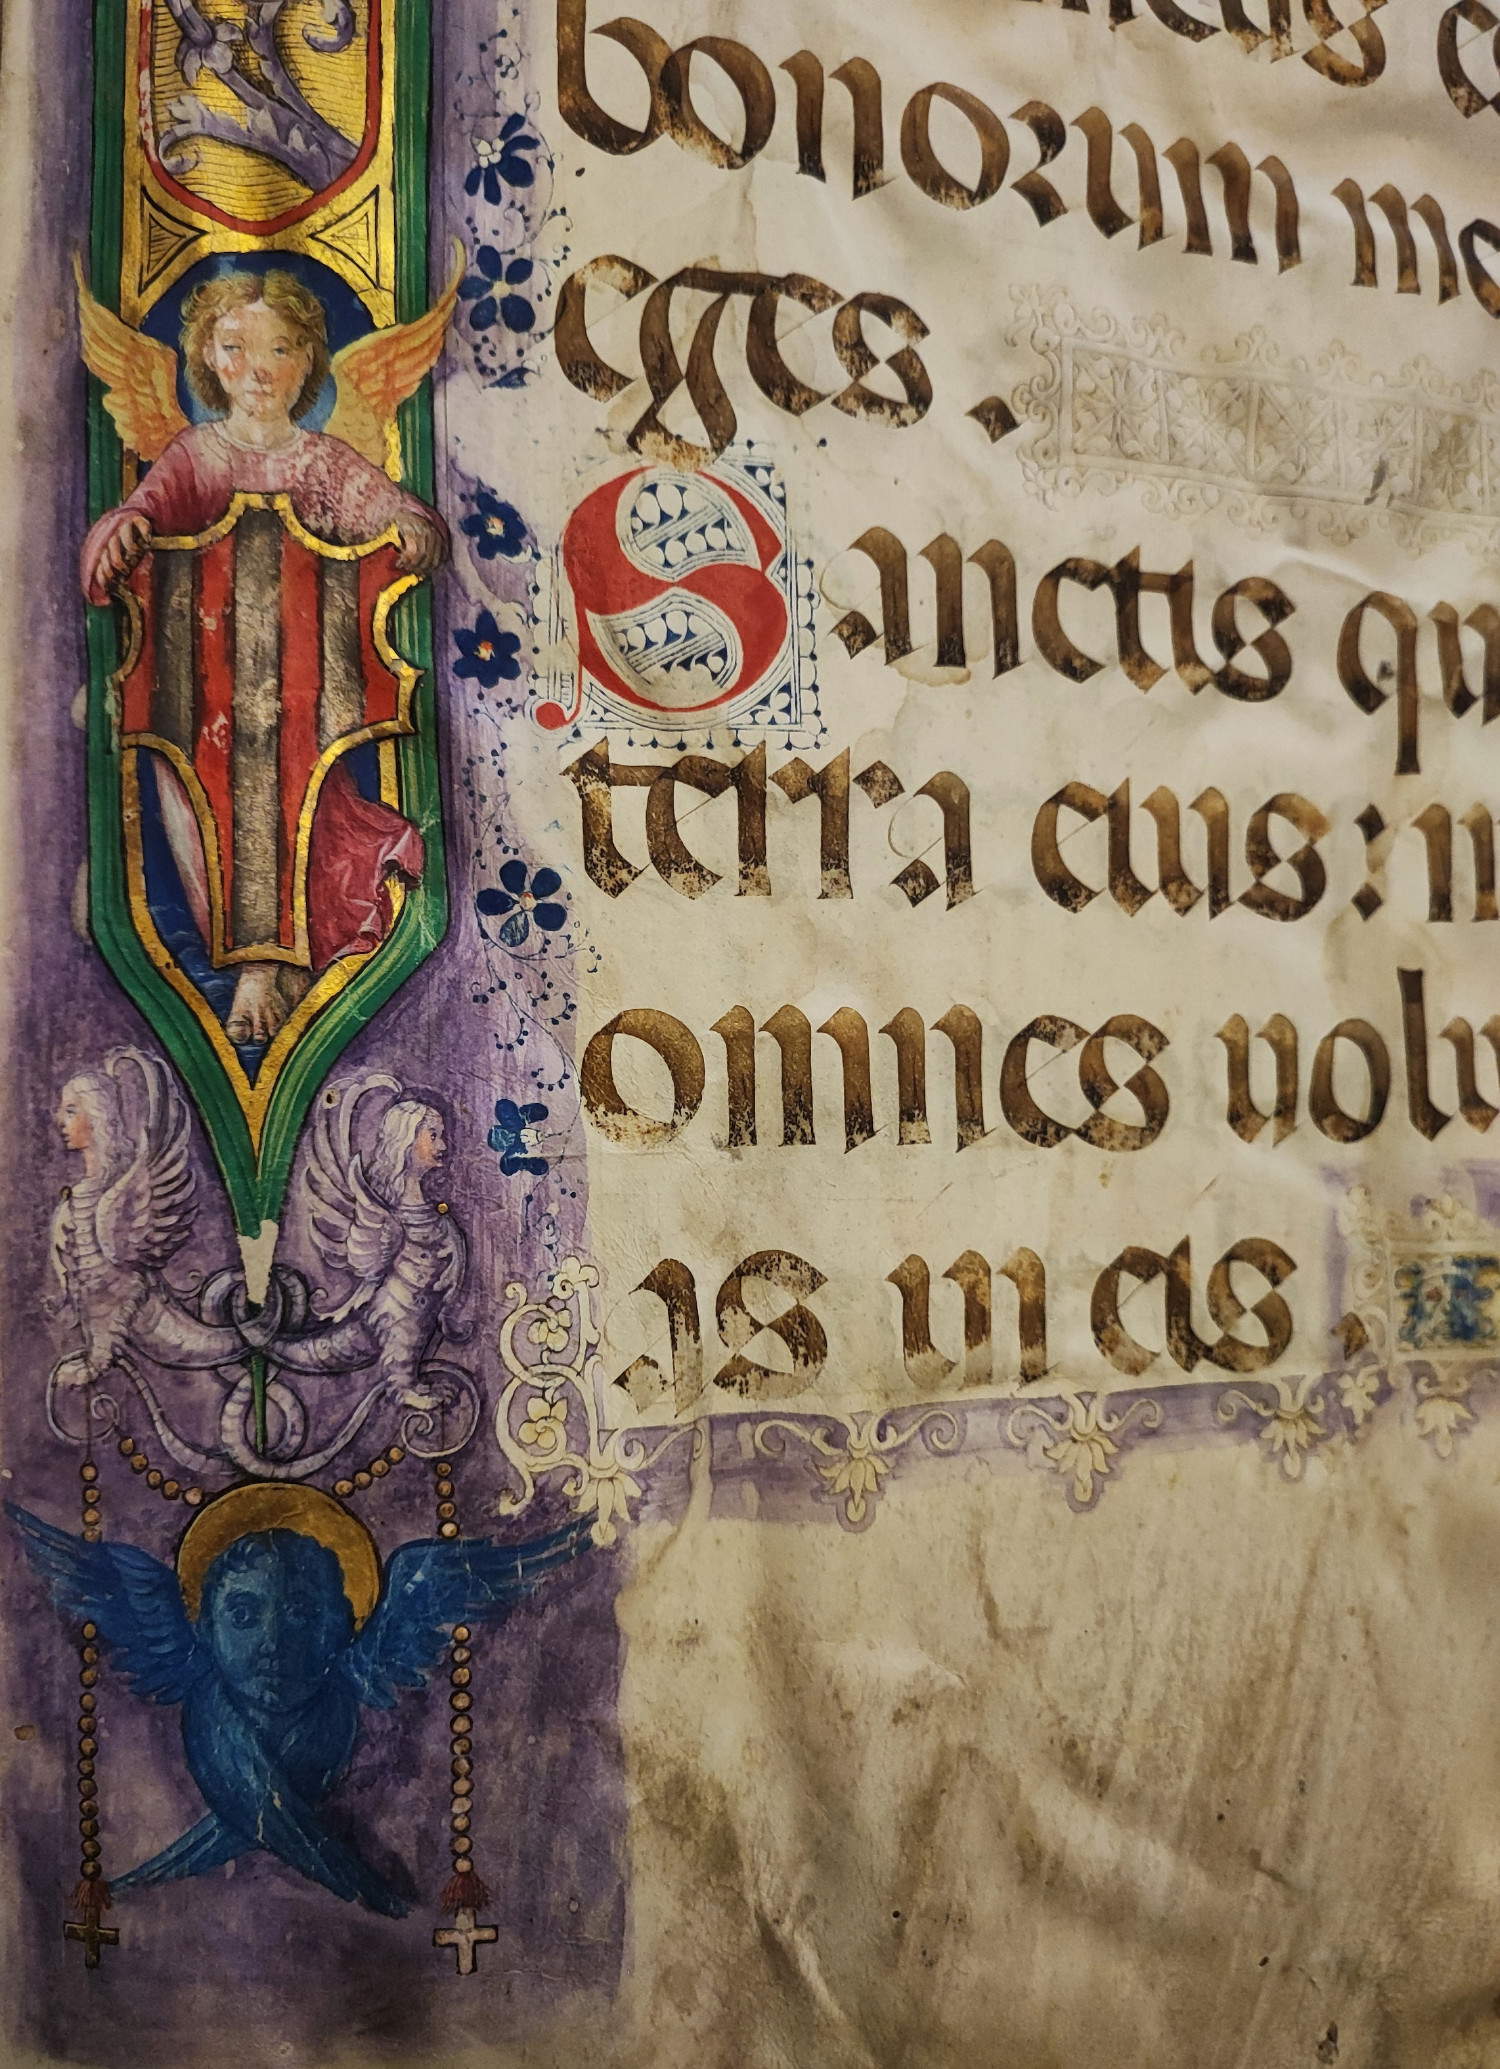 bonorum me
eges .
Sanctis qu
terra eius : m
omnes uolu
as in eis .